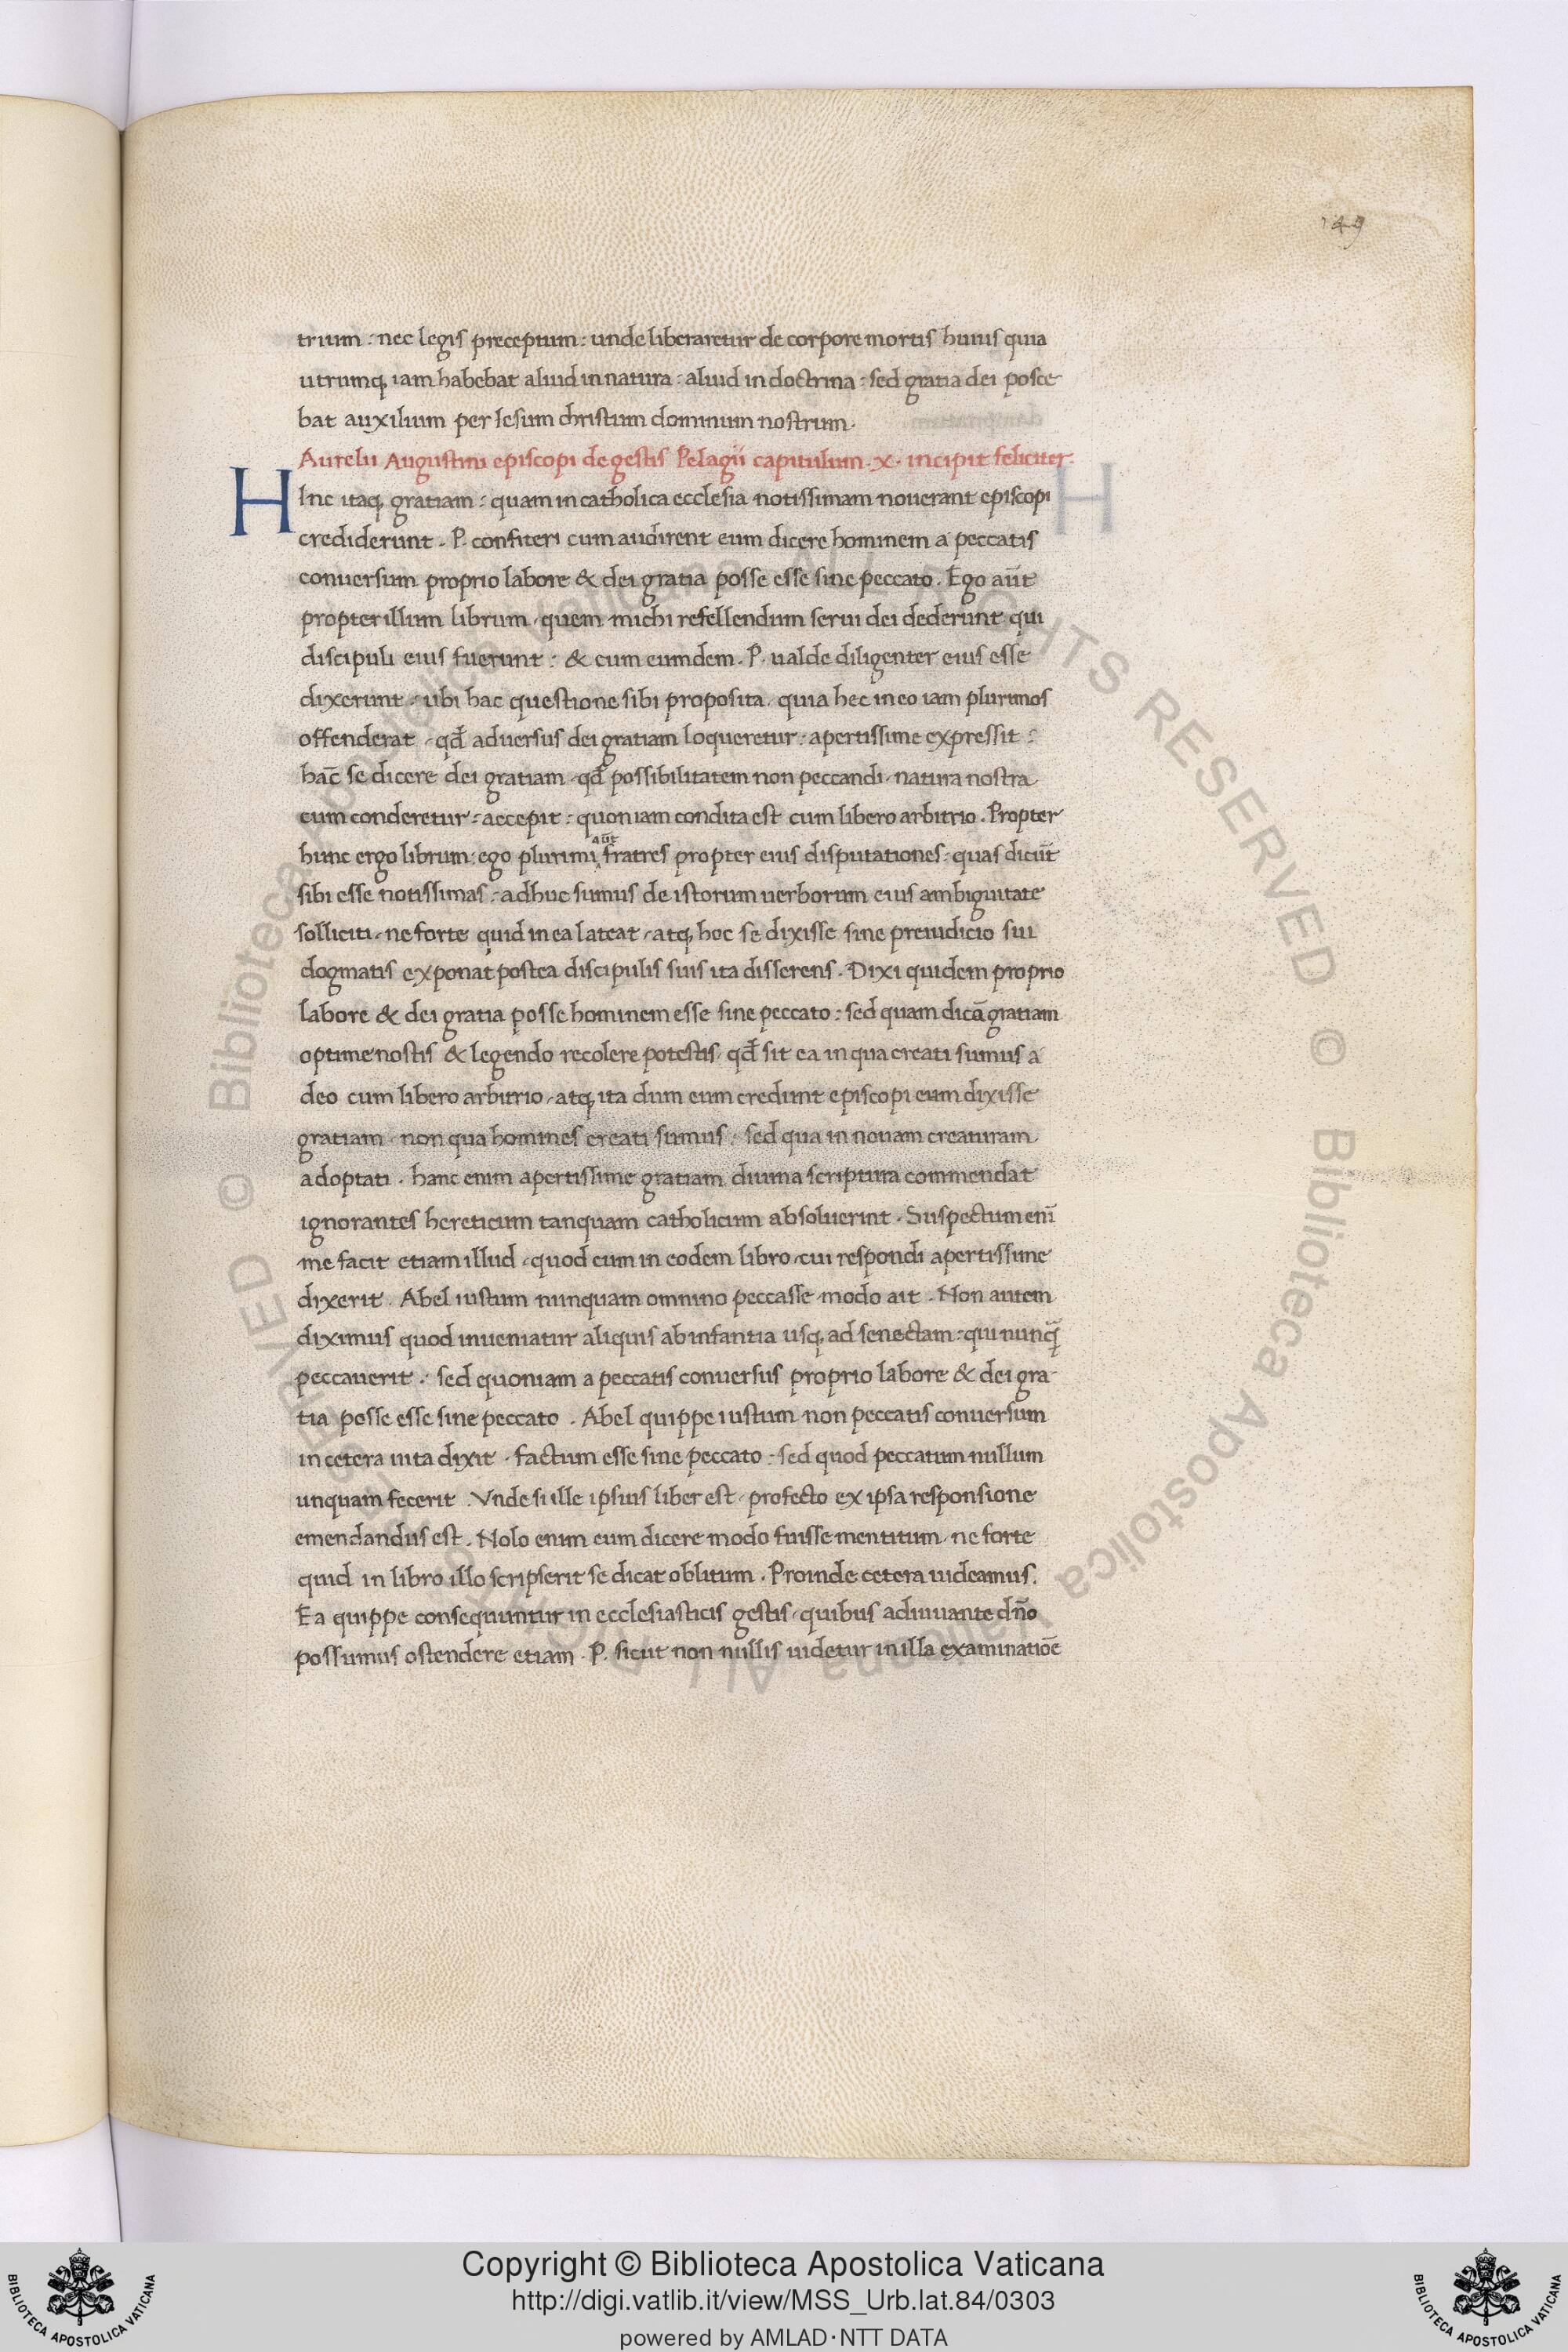 149
trium : nec legis preceptum : unde liberaretur de corpore mortis huius quia
utrumq; iam habebat aliud in natura : aliud in doctrina : sed gratia dei posce
bat auxilium per Iesum christum dominum nostrum.
Aurelii Augustini episcopi de gestis Pelagii capitulum . x . incipit feliciter.
HInc itaq; gratiam : quam in catholica ecclesia notissimam nouerant episcopi
crediderunt . P. confiteri cum audirent eum dicere hominem a peccatis
conuersum proprio labore & dei gratia posse esse sine peccato . Ego aūt
propter illum librum , quem michi refellendum serui dei dederunt qui
discipuli eius fuerunt : & cum eumdem . P. ualde diligenter eius esse
dixerunt , ubi hac questione sibi proposita , quia hec in eo iam plurimos
offenderat , qđ aduersus dei gratiam loqueretur : apertissime expressit :
hāc se dicere dei gratiam , qđ possibilitatem non peccandi , natura nostra
cum conderetur : accepit : quoniam condita est cum libero arbitrio . Propter
aūt
hunc ergo librum : ego plurimi fratres propter eius disputationes : quas dicūt
sibi esse notissimas : adhuc sumus de istorum uerborum eius ambiguitate
solliciti , ne forte quid in ea lateat , atq; hoc se dixisse sine preiudicio sui
dogmatis exponat postea discipulis suis ita disserens . Dixi quidem proprio
labore & dei gratia posse hominem esse sine peccato : sed quam dicā gratiam
optime nostis & legendo recolere potestis , qđ sit ea in qua creati sumus a
deo cum libero arbitrio , atq; ita dum eum credunt episcopi eum dixisse
gratiam , non qua homines creati sumus : sed qua in nouam creaturam
adoptati . hanc enim apertissime gratiam diuina scriptura commendat
ignorantes hereticum tanquam catholicum absoluerint . Suspectum enī
me facit etiam illud , quod cum in eodem libro , cui respondi apertissime
dixerit . Abel iustum nunquam omnino peccasse modo ait . Non autem
diximus quod inueniatur aliquis ab infantia usq; ad senectam : qui nunq̄
peccauerit : sed quoniam a peccatis conuersus proprio labore & dei gra
tia posse esse sine peccato . Abel quippe iustum non peccatis conuersum
in cetera uita dixit , factum esse sine peccato : sed quod peccatum nullum
unquam fecerit . Vnde si ille ipsius liber est , profecto ex ipsa responsione
emendandus est . Nolo enim eum dicere modo fuisse mentitum , ne forte
quid in libro illo scripserit se dicat oblitum . Proinde cetera uideamus .
Ea quippe consequuntur in ecclesiasticis gestis , quibus adiuuante dño
possumus ostendere etiam . P. sicut non nullis uidetur in illa examinatiōe
Copyright © Biblioteca Apostolica Vaticana
http://digi.vatlib.it/view/MSS_Urb.lat.84/0303
powered by AMLAD·NTT DATA